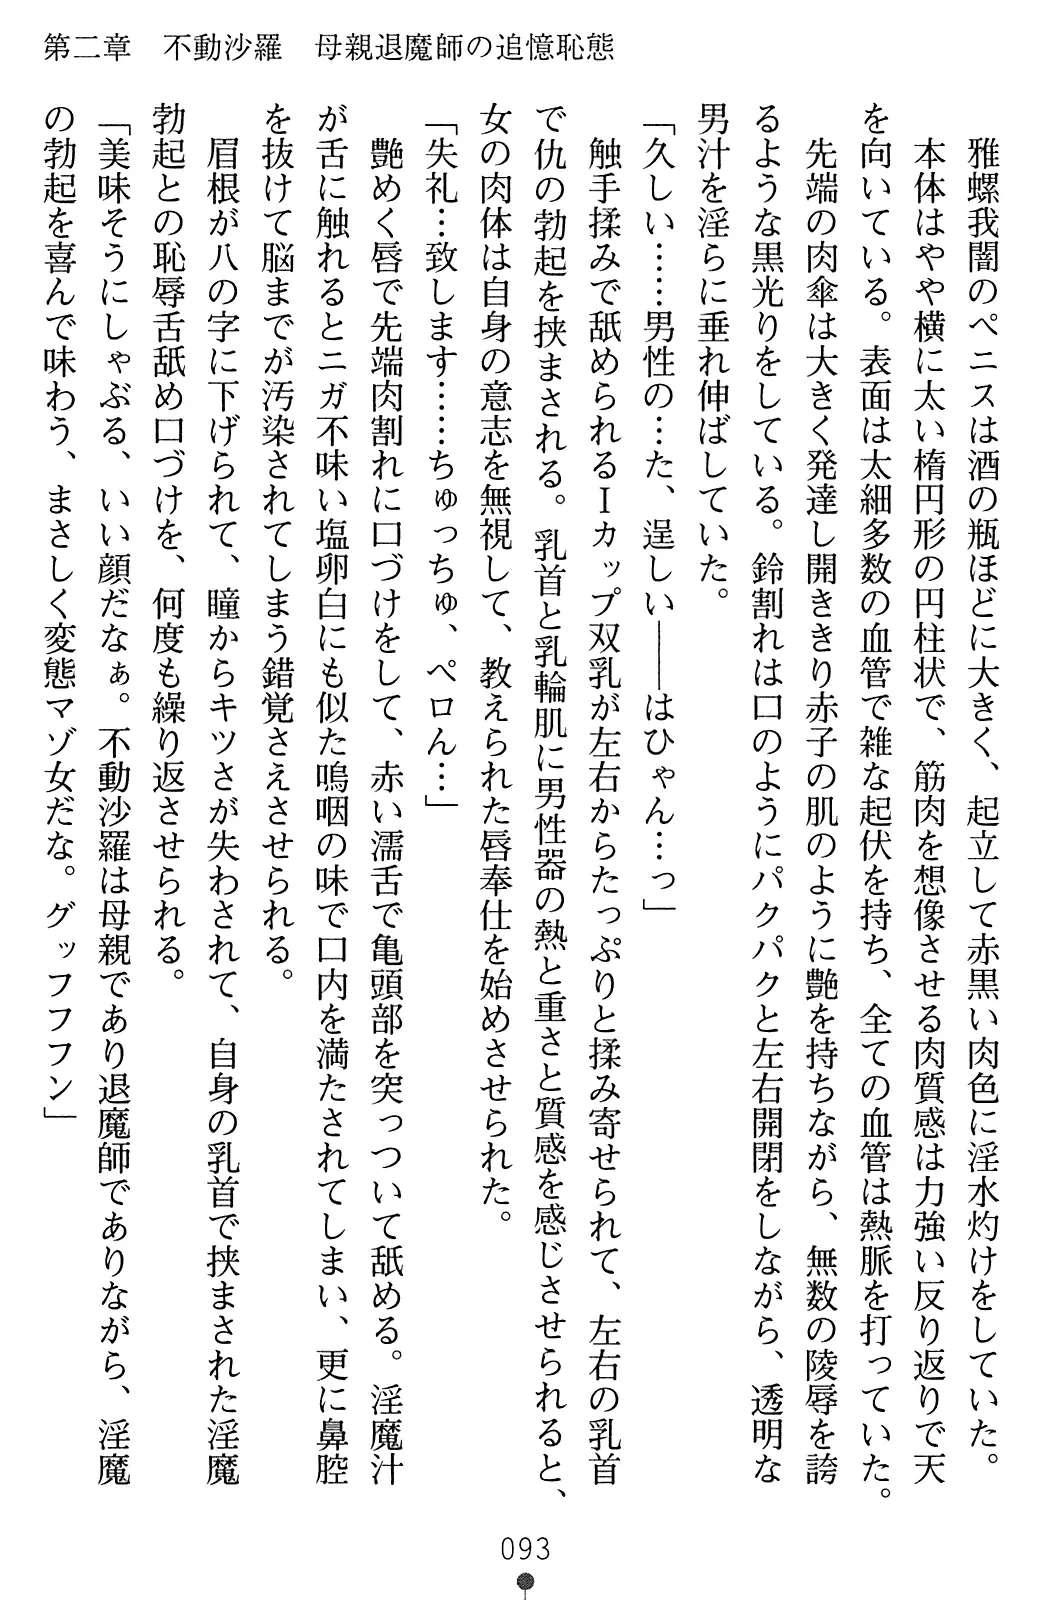 第二章　不動沙羅　母親退魔師の追憶恥態
　雅螺我闇のペニスは酒の瓶ほどに大きく、起立して赤黒い肉色に淫水灼けをしていた。
　本体はやや横に太い楕円形の円柱状で、筋肉を想像させる肉質感は力強い反り返りで天
を向いている。表面は太細多数の血管で雑な起伏を持ち、全ての血管は熱脈を打っていた。
　先端の肉傘は大きく発達し開ききり赤子の肌のように艶を持ちながら、無数の陵辱を誇
るような黒光りをしている。鈴割れは口のようにパクパクと左右開閉をしながら、透明な
男汁を淫らに垂れ伸ばしていた。
「久しい……男性の…た、逞しい――はひゃん…っ」
　触手揉みで舐められるＩカップ双乳が左右からたっぷりと揉み寄せられて、左右の乳首
で仇の勃起を挟まされる。乳首と乳輪肌に男性器の熱と重さと質感を感じさせられると、
女の肉体は自身の意志を無視して、教えられた唇奉仕を始めさせられた。
「失礼…致します……ちゅっちゅ、ペロん…」
　艶めく唇で先端肉割れに口づけをして、赤い濡舌で亀頭部を突っついて舐める。淫魔汁
が舌に触れるとニガ不味い塩卵白にも似た嗚咽の味で口内を満たされてしまい、更に鼻腔
を抜けて脳までが汚染されてしまう錯覚さえさせられる。
　眉根が八の字に下げられて、瞳からキツさが失わされて、自身の乳首で挟まされた淫魔
勃起との恥辱舌舐め口づけを、何度も繰り返させられる。
「美味そうにしゃぶる、いい顔だなぁ。不動沙羅は母親であり退魔師でありながら、淫魔
の勃起を喜んで味わう、まさしく変態マゾ女だな。グッフフフン」
093